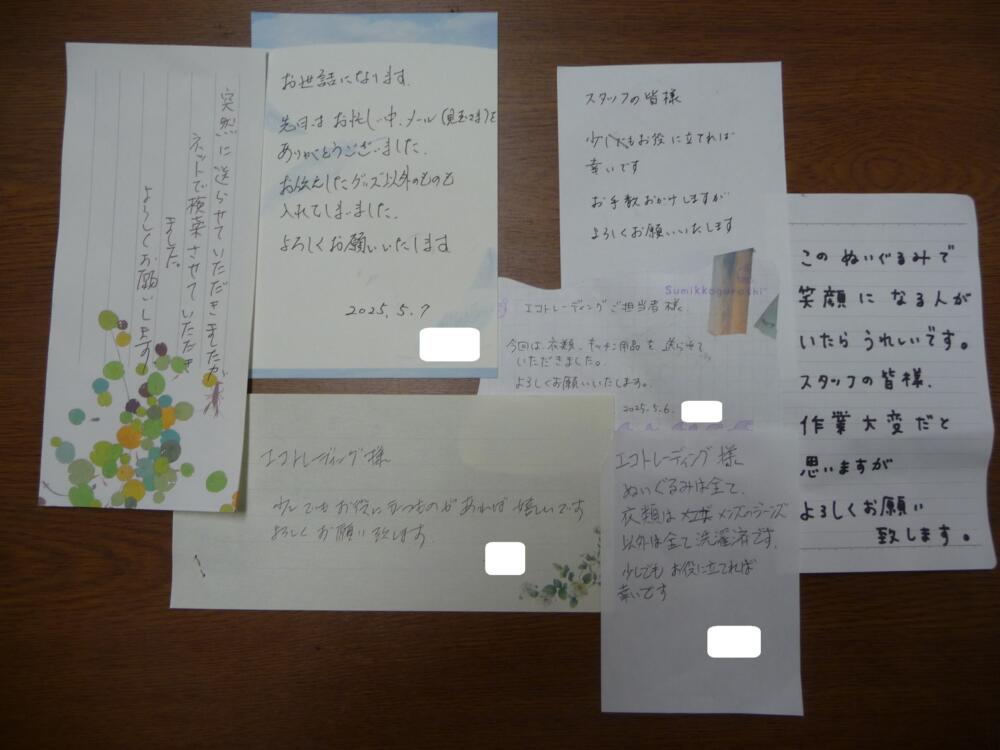 突然に送らせていただきましたが
ネットで検索させていただき
ました。
よろしくお願いします
お世話になります.
先日は お忙し中、メール(児玉さま)を
ありがとうございました.
お伝えしたグッズ以外のものも
入れてしまいました.
よろしくお願いいたします
2025.5.7
スタッフの皆様
少しでもお役に立てれば
幸いです
お手数おかけしますが
よろしくお願いいたします
Sumikkogurashi
エコトレーディングご担当者様.
今回は、衣類、キッチン用品を送らせて
いただきました。
よろしくお願いいたします。
2025.5.6.
このぬいぐるみで
笑顔になる人が
いたらうれしいです。
スタッフの皆様、
作業大変だと
思いますが
よろしくお願い
致します。
エコトレーディング様
少しでもお役に立つものがあれば嬉しいです
よろしくお願い致します.
エコトレーディング様
ぬいぐるみは全て、
衣類は メンズのジーンズ
以外は全て洗濯済です.
少しでもお役に立てれば
幸いです